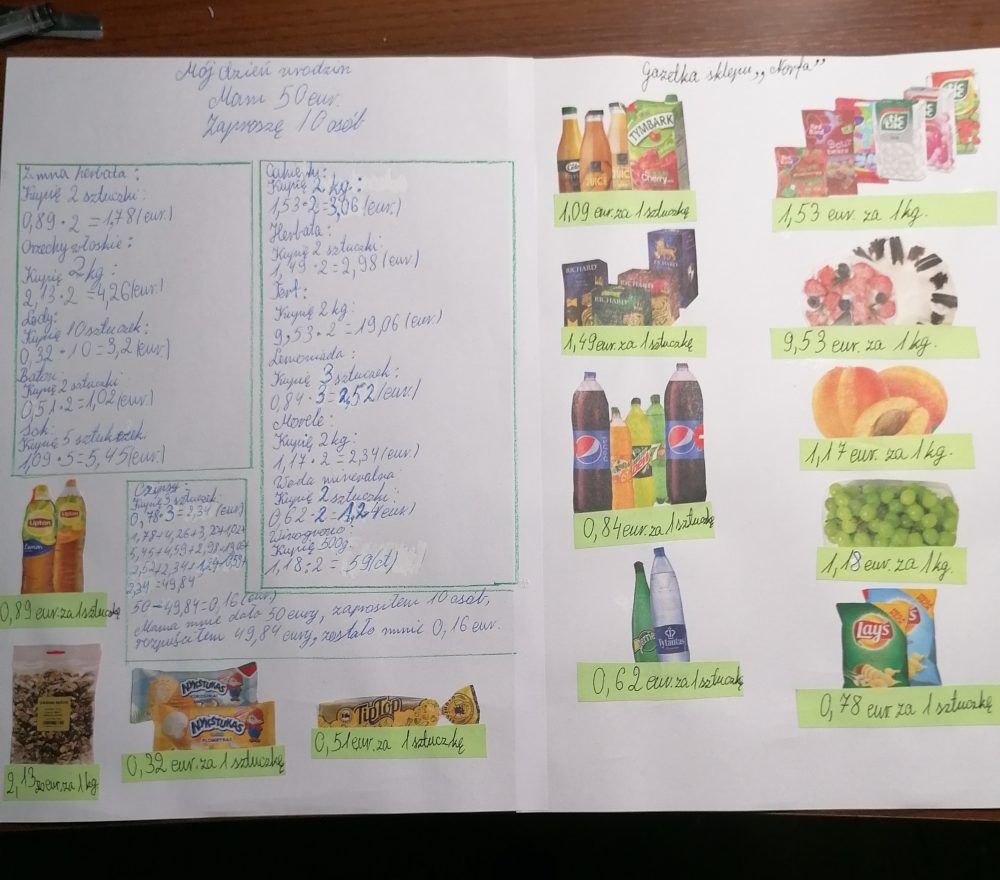 Mój dzień urodzin
Mam 50 eur.
Zaproszę 10 osób
Zimna herbata:
Kupię 2 sztuczki:
0,89 · 2 = 1,78 (eur.)
Orzechy włoskie:
Kupię 2 kg:
2,13 · 2 = 4,26 (eur.)
Lody:
Kupię 10 sztuczek:
0,32 · 10 = 3,2 (eur.)
Kupię 2 sztuczki:
0,51 · 2 = 1,02 (eur.)
Sok:
Kupię 5 sztuczek:
1,09 · 5 = 5,45 (eur.)
Cukierki:
Kupię 2 kg:
1,53 · 2 = 3,06 (eur.)
Herbata:
Kupię 2 sztuczki:
1,49 · 2 = 2,98 (eur.)
Tort:
Kupię 2 kg:
9,53 · 2 = 19,06 (eur.)
Lemoniada:
Kupię 3 sztuczek:
0,84 · 3 = 2,52 (eur.)
Morele:
Kupię 2 kg:
1,17 · 2 = 2,34 (eur.)
Woda mineralna:
Kupię 2 sztuczki:
0,62 · 2 = 1,24 (eur.)
Winogrono:
Kupię 500g.
1,18 : 2 = 59 (ct)
Kupię 3 sztuczek:
0,78 · 3 = 2,34 (eur.)
1,78 + 4,26 + 3,2 + 1,02 +
2,34 = 49,84
50 - 49,84 = 0,16 (eur.)
Mama mnie dała 50 eurų, zaprosiłem 10 osób,
49,84 eurų, zostało mnie 0,16 eur.
Lipton
Lipton
Lemon
0,89 eur. za 1 sztuczkę
2,13 eur. za 1 kg
NYKŠTUKAS
NYKŠTUKAS
PLOMBYRAS
0,32 eur. za 1 sztuczkę
TipTop
0,51 eur. za 1 sztuczkę
Gazetka sklepu „Norfa”
JUICE
JUICE
TYMBARK
Cherry
1,09 eur. za 1 sztuczkę
tic tac
1,53 eur. za 1 kg.
RICHARD
RICHARD
RICHARD
1,49 eur. za 1 sztuczkę
9,53 eur. za 1 kg.
pepsi
0,84 eur. za 1 sztuczkę
1,17 eur. za 1 kg.
1,18 eur. za 1 kg.
Perrier
Vytautas
0,62 eur. za 1 sztuczkę
Lay's
0,78 eur. za 1 sztuczkę